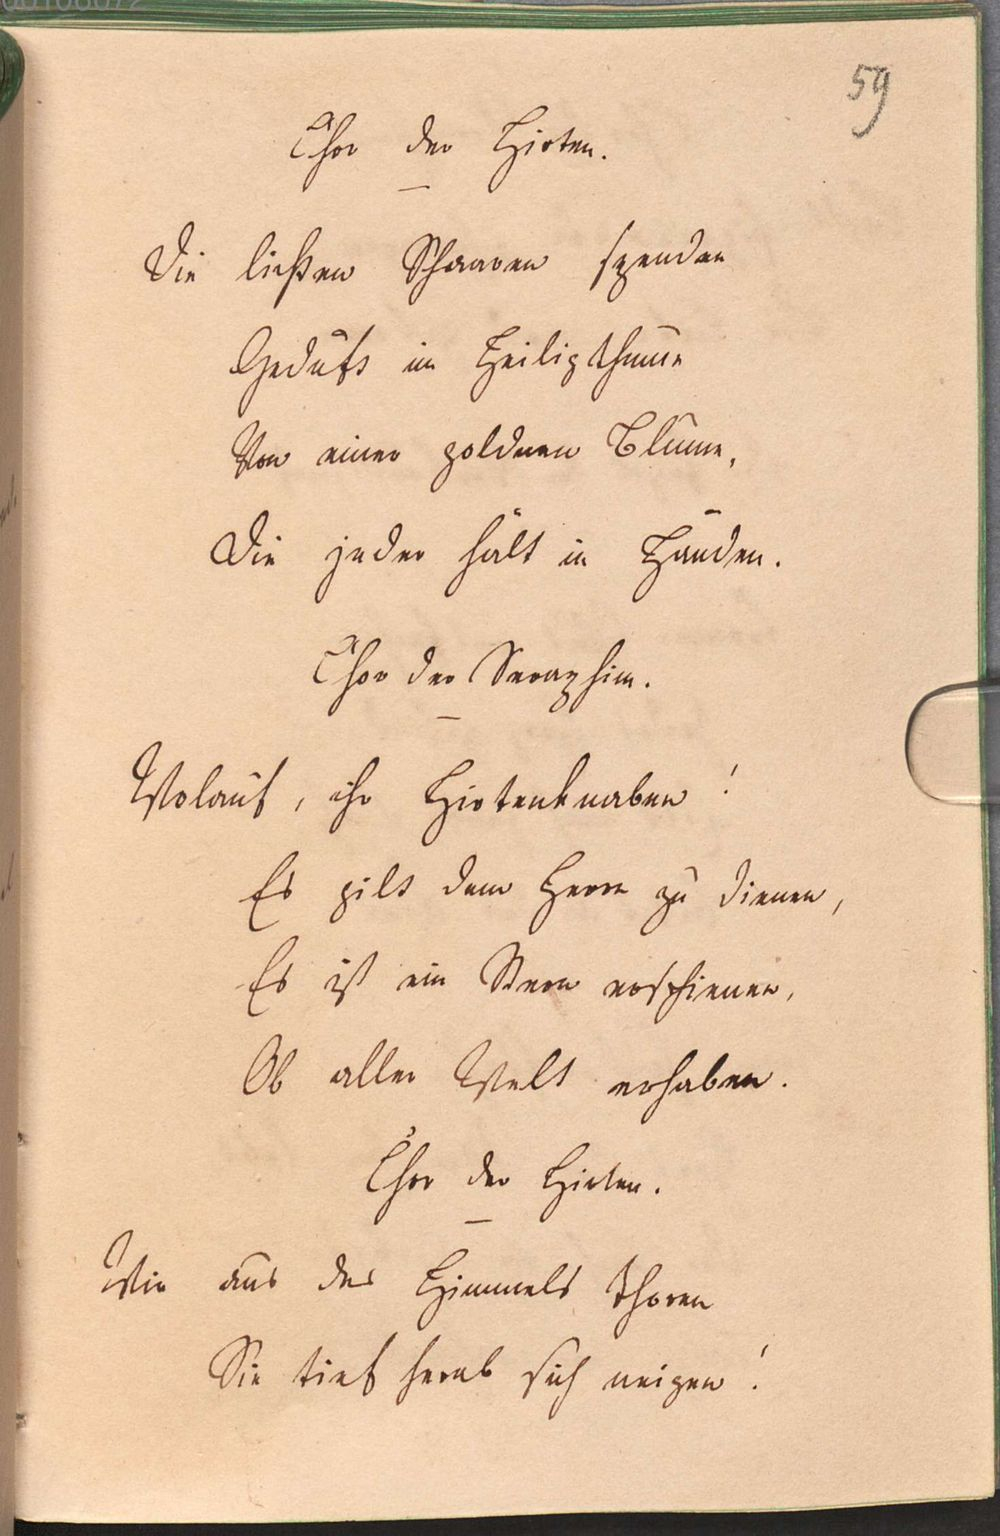 59
Chor der Hirten.
Die lichten Schaaren spenden
Geduft im Heiligthume
Von einer goldnen Blume,
Die jeder hält in Händen.
Chor der Seraphim.
Wolauf, ihr Hirtenknaben!
Es gilt dem Herrn zu dienen,
Es ist ein Stern erschienen,
Ob aller Welt erhaben.
Chor der Hirten.
Wie aus des Himmels Thoren
Sie tief herab sich neigen!